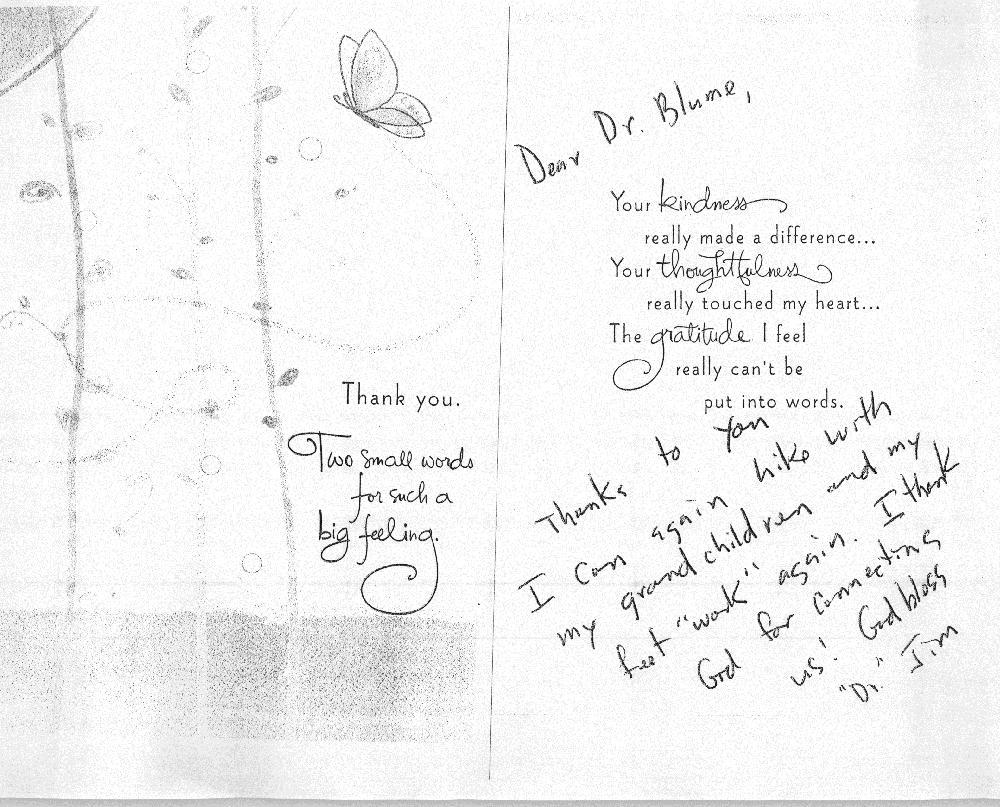 Thank you.
Two small words
for such a
big feeling.
Dear Dr. Blume,
Your kindness
really made a difference...
Your thoughtfulness
really touched my heart...
The gratitude I feel
really can't be
put into words.
Thanks to You
I can again hike with
my grandchildren and my
feet "work" again. I thank
God for connecting
us! God bless
"Dr." Jim